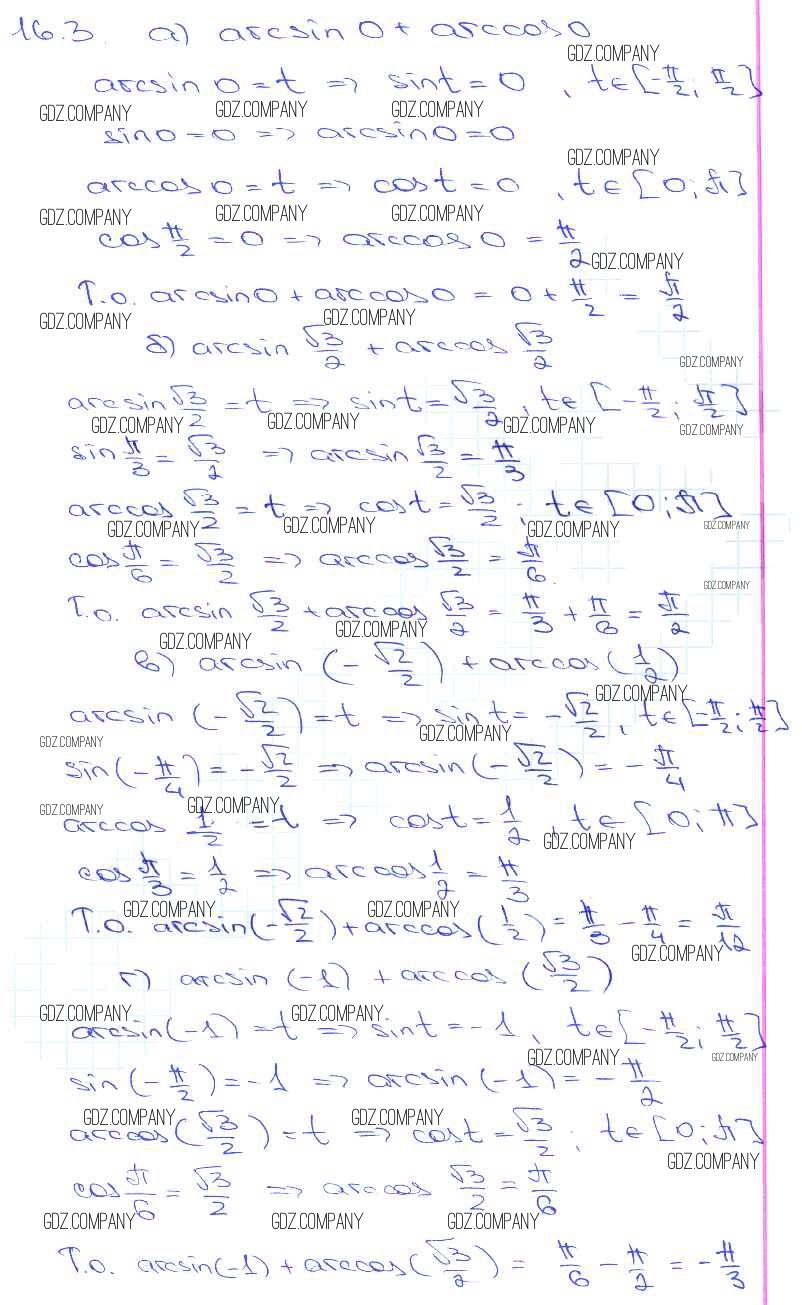 16.3. а) arcsin 0 + arccos 0
GDZ.COMPANY
arcsin 0 = t => sin t = 0, t ∈ [-π/2; π/2]
GDZ.COMPANY GDZ.COMPANY GDZ.COMPANY
sin 0 = 0 => arcsin 0 = 0
GDZ.COMPANY
arccos 0 = t => cos t = 0, t ∈ [0; π]
GDZ.COMPANY GDZ.COMPANY GDZ.COMPANY
cos π/2 = 0 => arccos 0 = π/2
GDZ.COMPANY
Т.о. arcsin 0 + arccos 0 = 0 + π/2 = π/2
GDZ.COMPANY GDZ.COMPANY
б) arcsin √3/2 + arccos √3/2
GDZ.COMPANY
arcsin √3/2 = t => sin t = √3/2, t ∈ [-π/2; π/2]
GDZ.COMPANY GDZ.COMPANY GDZ.COMPANY GDZ.COMPANY
sin π/3 = √3/2 => arcsin √3/2 = π/3
arccos √3/2 = t => cos t = √3/2; t ∈ [0; π]
GDZ.COMPANY GDZ.COMPANY GDZ.COMPANY GDZ.COMPANY
cos π/6 = √3/2 => arccos √3/2 = π/6.
GDZ.COMPANY
Т.о. arcsin √3/2 + arccos √3/2 = π/3 + π/6 = π/2
GDZ.COMPANY GDZ.COMPANY
в) arcsin (-√2/2) + arccos (1/2)
GDZ.COMPANY
arcsin (-√2/2) = t => sin t = -√2/2, t ∈ [-π/2; π/2]
GDZ.COMPANY GDZ.COMPANY
sin (-π/4) = -√2/2 => arcsin (-√2/2) = -π/4
GDZ.COMPANY GDZ.COMPANY
arccos 1/2 = t => cos t = 1/2, t ∈ [0; π]
GDZ.COMPANY
cos π/3 = 1/2 => arccos 1/2 = π/3
GDZ.COMPANY GDZ.COMPANY
Т.о. arcsin (-√2/2) + arccos (1/2) = π/3 - π/4 = π/12
GDZ.COMPANY
г) arcsin (-1) + arccos (√3/2)
GDZ.COMPANY GDZ.COMPANY
arcsin (-1) = t => sin t = -1, t ∈ [-π/2; π/2]
GDZ.COMPANY GDZ.COMPANY
sin (-π/2) = -1 => arcsin (-1) = -π/2
GDZ.COMPANY GDZ.COMPANY
arccos (√3/2) = t => cos t = √3/2; t ∈ [0; π]
GDZ.COMPANY
cos π/6 = √3/2 => arccos √3/2 = π/6
GDZ.COMPANY GDZ.COMPANY GDZ.COMPANY
Т.о. arcsin (-1) + arccos (√3/2) = π/6 - π/2 = -π/3